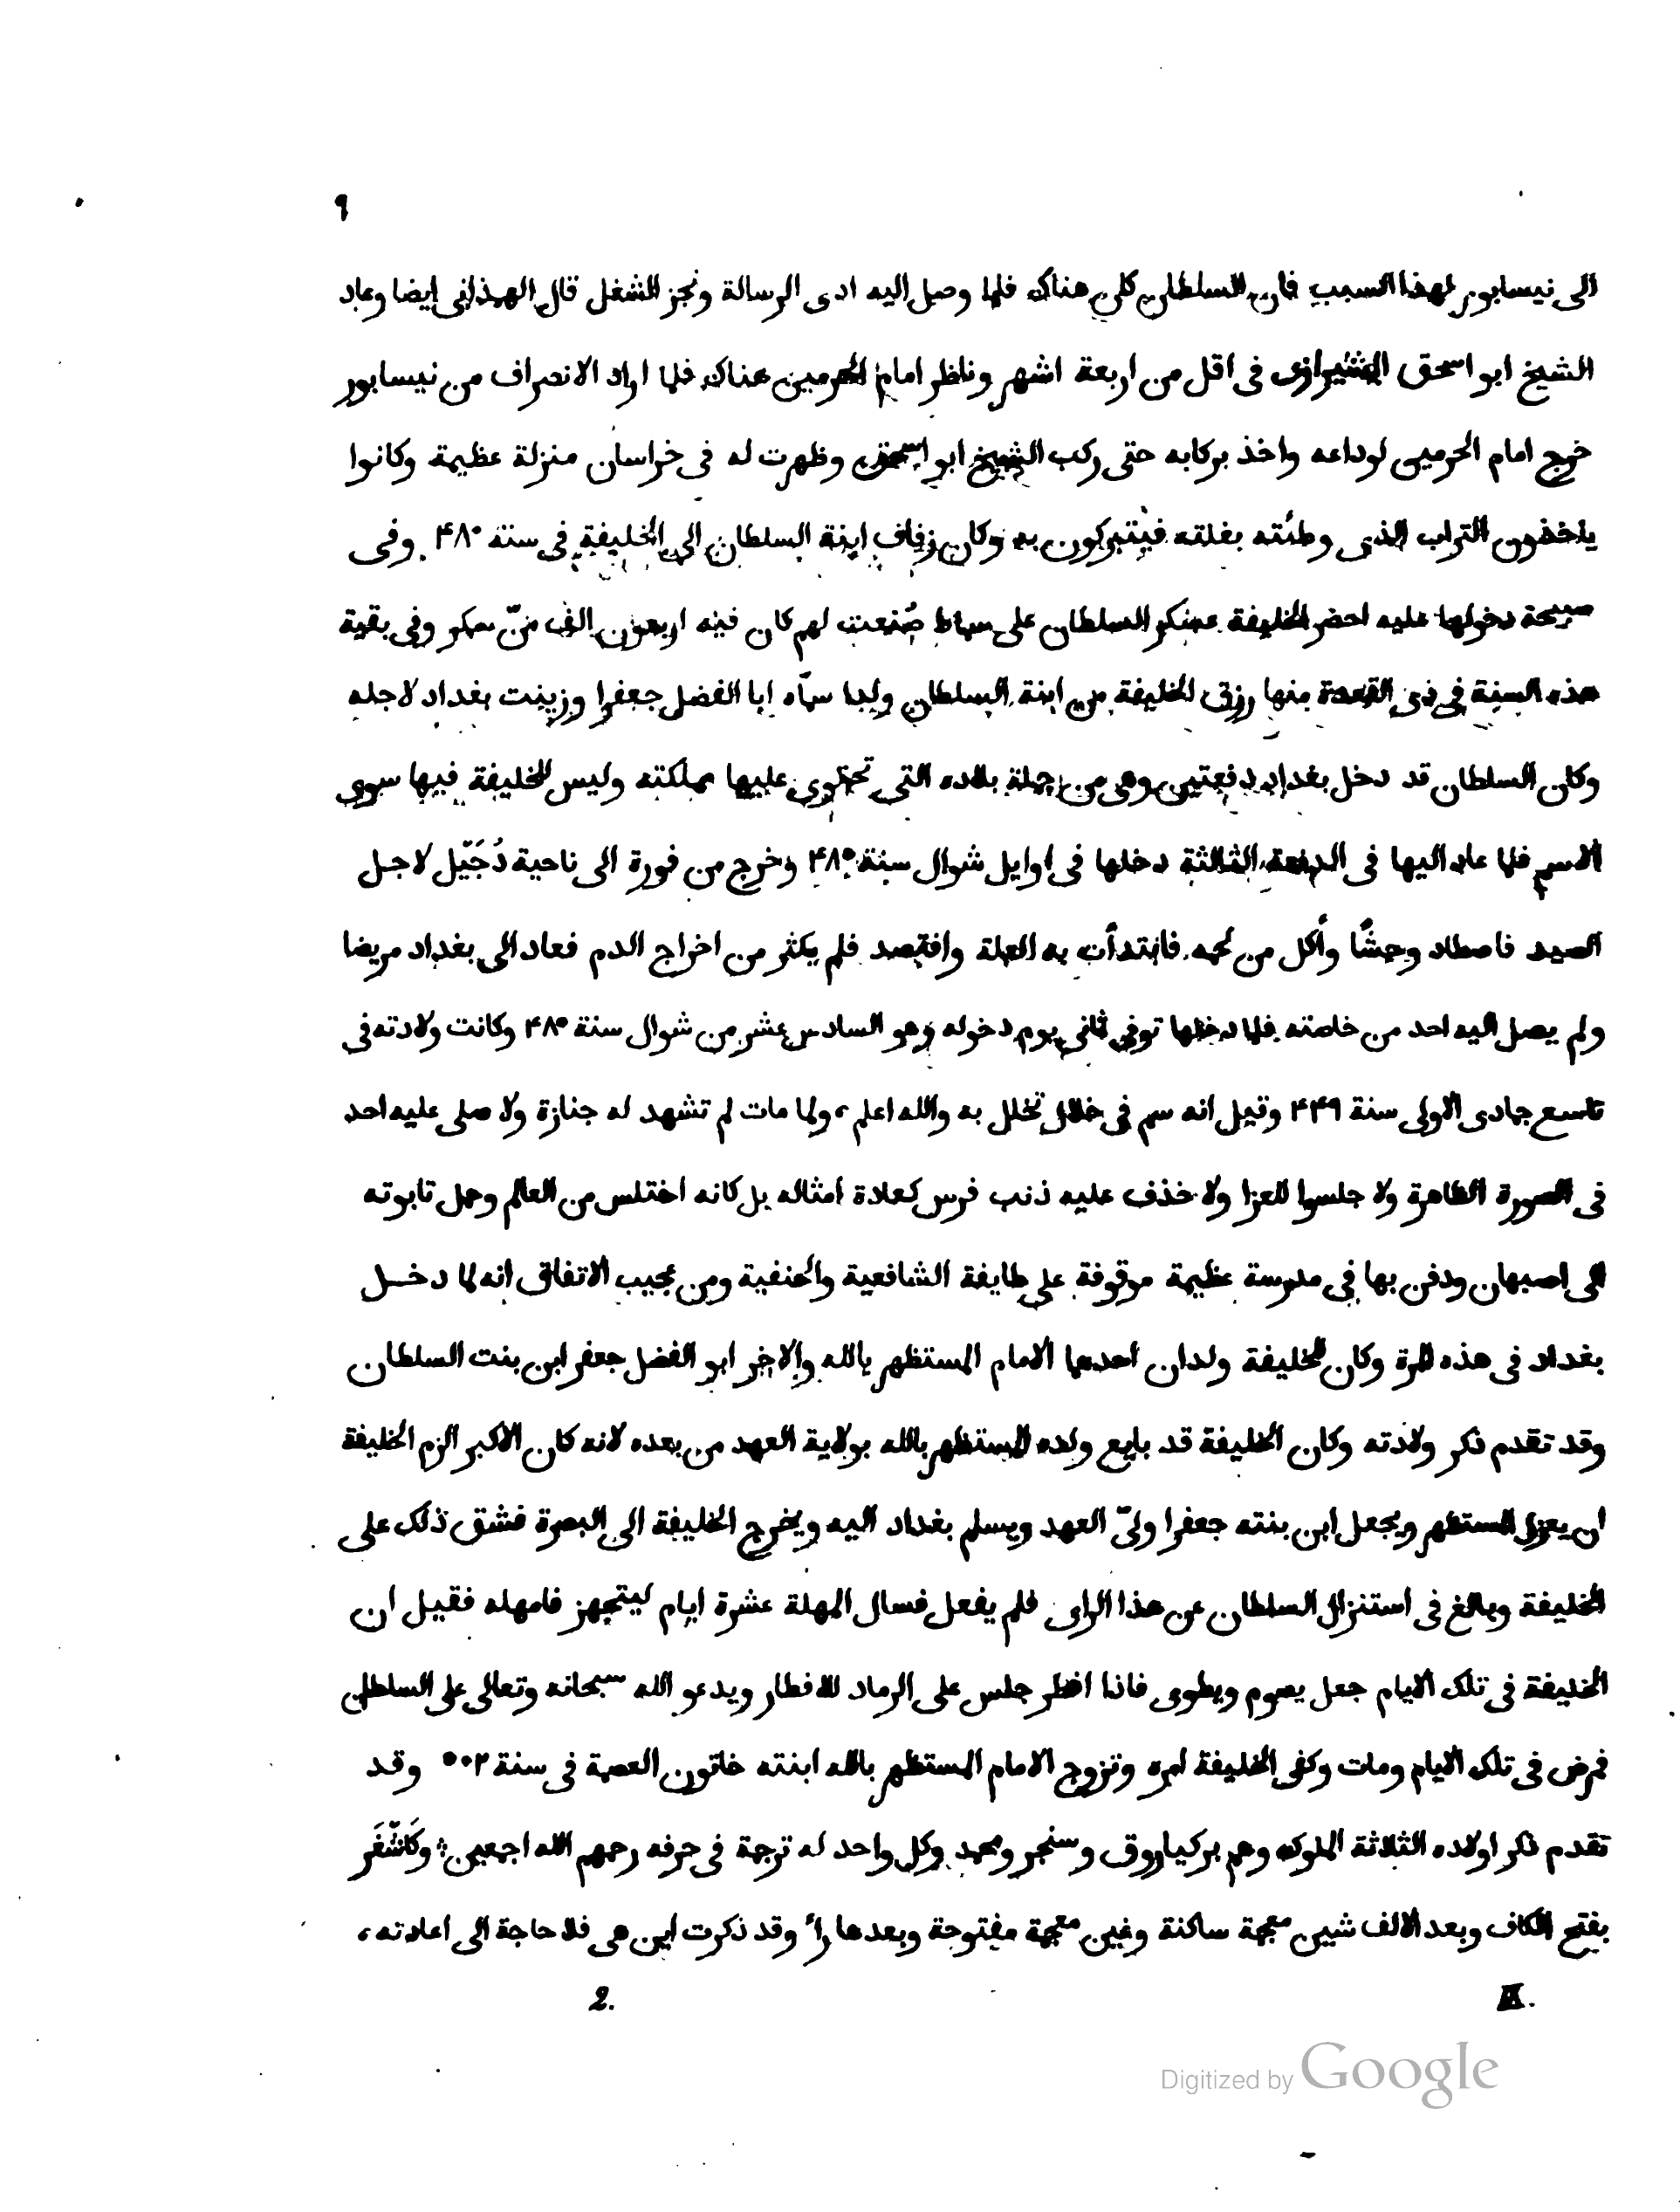 ٩
الى نيسابور لهذا السبب فان السلطان كان هناك فلما وصل اليه ادى الرسالة ونجز الشغل قال الهمذانى ايضا وعاد
الشيخ ابو اسحق الشيرازى فى اقل من اربعة اشهر وناظر امام الحرمين هناك فلما اراد الانصراف من نيسابور
خرج امام الحرمين لوداعه واخذ بركابه حتى ركب الشيخ ابو اسحق وظهرت له فى خراسان منزلة عظيمة وكانوا
ياخذون التراب الذى وطئته بغلته فيتبركون به وكان زفاف ابنة السلطان الى الخليفة فى سنة ۴۸۰ وفى
صبيحة دخولها عليه احضر الخليفة عسكر السلطان على سماط صُنعت لهم كان فيه اربعون الف منّ سكر وفى بقية
هذه السنة فى ذى القعدة منها رزق الخليفة من ابنة السلطان ولدا سمّاه ابا الفضل جعفرا وزينت بغداد لاجله
وكان السلطان قد دخل بغداد دفعتين وهى من جملة بلاده التى تحتوى عليها مملكته وليس للخليفة فيها سوى
الاسم فلما عاد اليها فى الدفعة الثالثة دخلها فى اوايل شوال سنة ۴۸٥ وخرج من فورة الى ناحية دُجَيّل لاجل
الصيد فاصطاد وحشًا وأكل من لحمه فابتدأت به العلة وافتصد فلم يكثر من اخراج الدم فعاد الى بغداد مريضا
ولم يصل اليه احد من خاصته فلما دخلها توفى ثانى يوم دخوله وهو السادس عشر من شوال سنة ۴۸٥ وكانت ولادته فى
تاسع جمادى الاولى سنة ۴۴٩ وقيل انه سم فى خلال تخلل به والله اعلم، ولما مات لم تشهد له جنازة ولا صلى عليه احد
فى الصورة الظاهرة ولا جلسوا للعزا ولا خذف عليه ذنب فرس كعادة امثاله بل كانه اختلس من العالم وحمل تابوته
الى اصبهان ودفن بها فى مدرسة عظيمة موقوفة على طايفة الشافعية والحنفية ومن عجيب الاتفاق انه لما دخل
بغداد فى هذه المرة وكان للخليفة ولدان احدهما الامام المستظهر بالله والاخر ابو الفضل جعفر ابن بنت السلطان
وقد تقدم ذكر ولادته وكان الخليفة قد بايع ولده المستظهر بالله بولاية العهد من بعده لانه كان الاكبر الزم الخليفة
ان يعزل المستظهر ويجعل ابن بنته جعفرا ولىّ العهد ويسلم بغداد اليه ويخرج الخليفة الى البصرة فشق ذلك على
الخليفة وبالغ فى استنزال السلطان عن هذا الراى فلم يفعل فسال المهلة عشرة ايام ليتجهز فامهله فقيل ان
الخليفة فى تلك الايام جعل يصوم ويطوى فاذا افطر جلس على الرماد للافطار ويدعو الله سبحانه وتعالى على السلطان
فمرض فى تلك الايام ومات وكفى الخليفة امره وتزوج الامام المستظهر بالله ابنته خاتون العصمة فى سنة ٥٠٢ وقد
تقدم ذكر اولاده الثلاثة الملوك وهم بركياروق وسنجر ومحمد وكل واحد له ترجمة فى حرفه رحمهم الله اجمعين؛ وكَاشْغَر
بفتح الكاف وبعد الالف شين معجمة ساكنة وغين معجمة مفتوحة وبعدها راٴ وقد ذكرت اين هى فلا حاجة الى اعادته،
II. 2.
Digitized by Google